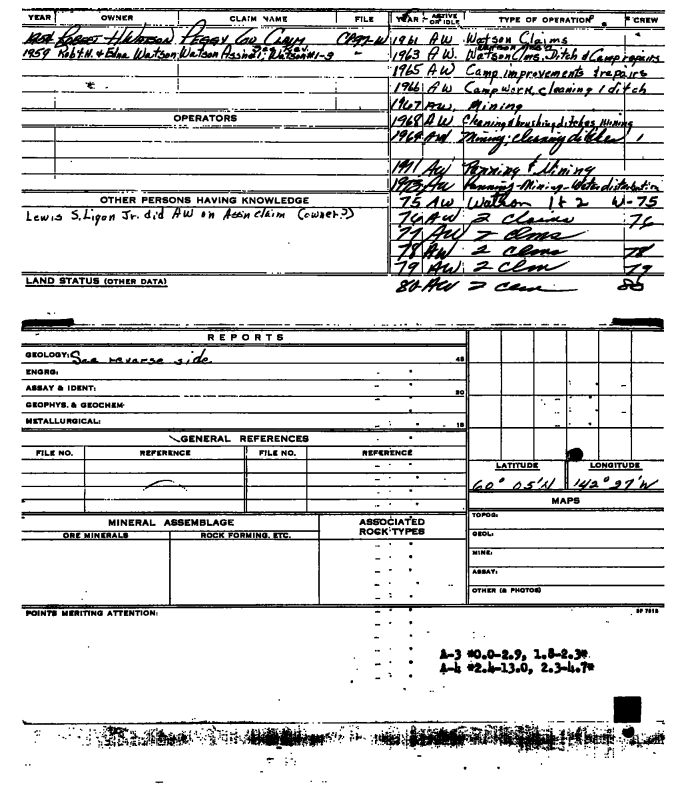 YEAR OWNER CLAIM NAME FILE YEAR ACTIVE OR IDLE TYPE OF OPERATION CREW
1959 Robt. H. & Edna Watson; Watson Assn #1-3 -
1961 AW Watson Claims
1963 AW. Watson Clms. Ditch & Camp repairs
1965 AW Camp improvements & repairs
1966 AW Camp work, cleaning ditch
1967 AW, Mining
OPERATORS
1968 AW Cleaning & brushing ditches, Mining
1969 AW Mining; cleaning ditches 1
1971 AW Panning & Mining
AW Panning-Mining-Water distribution
OTHER PERSONS HAVING KNOWLEDGE
75 AW Watson 1 & 2 W-75
Lewis S. Ligon Jr. did AW on Assn claim (owner?)
76 AW 2 claims 76
77 AW 2 clms
78 AW 2 clms 78
79 AW 2 clm 79
LAND STATUS (OTHER DATA)
80 AW 2 clm 80
REPORTS
GEOLOGY: See reverse side. 45
ENGRG:
ASSAY & IDENT: 30
GEOPHYS. & GEOCHEM:
METALLURGICAL: 15
GENERAL REFERENCES
FILE NO. REFERENCE FILE NO. REFERENCE
LATITUDE LONGITUDE
60° 05'N 142° 27'W
MAPS
MINERAL ASSEMBLAGE ASSOCIATED ROCK TYPES
ORE MINERALS ROCK FORMING, ETC.
TOPOG:
GEOL:
MINE:
ASSAY:
OTHER (& PHOTOS)
POINTS MERITING ATTENTION:
A-3 *0.0-2.9, 1.8-2.3*
A-4 *2.4-13.0, 2.3-4.7*